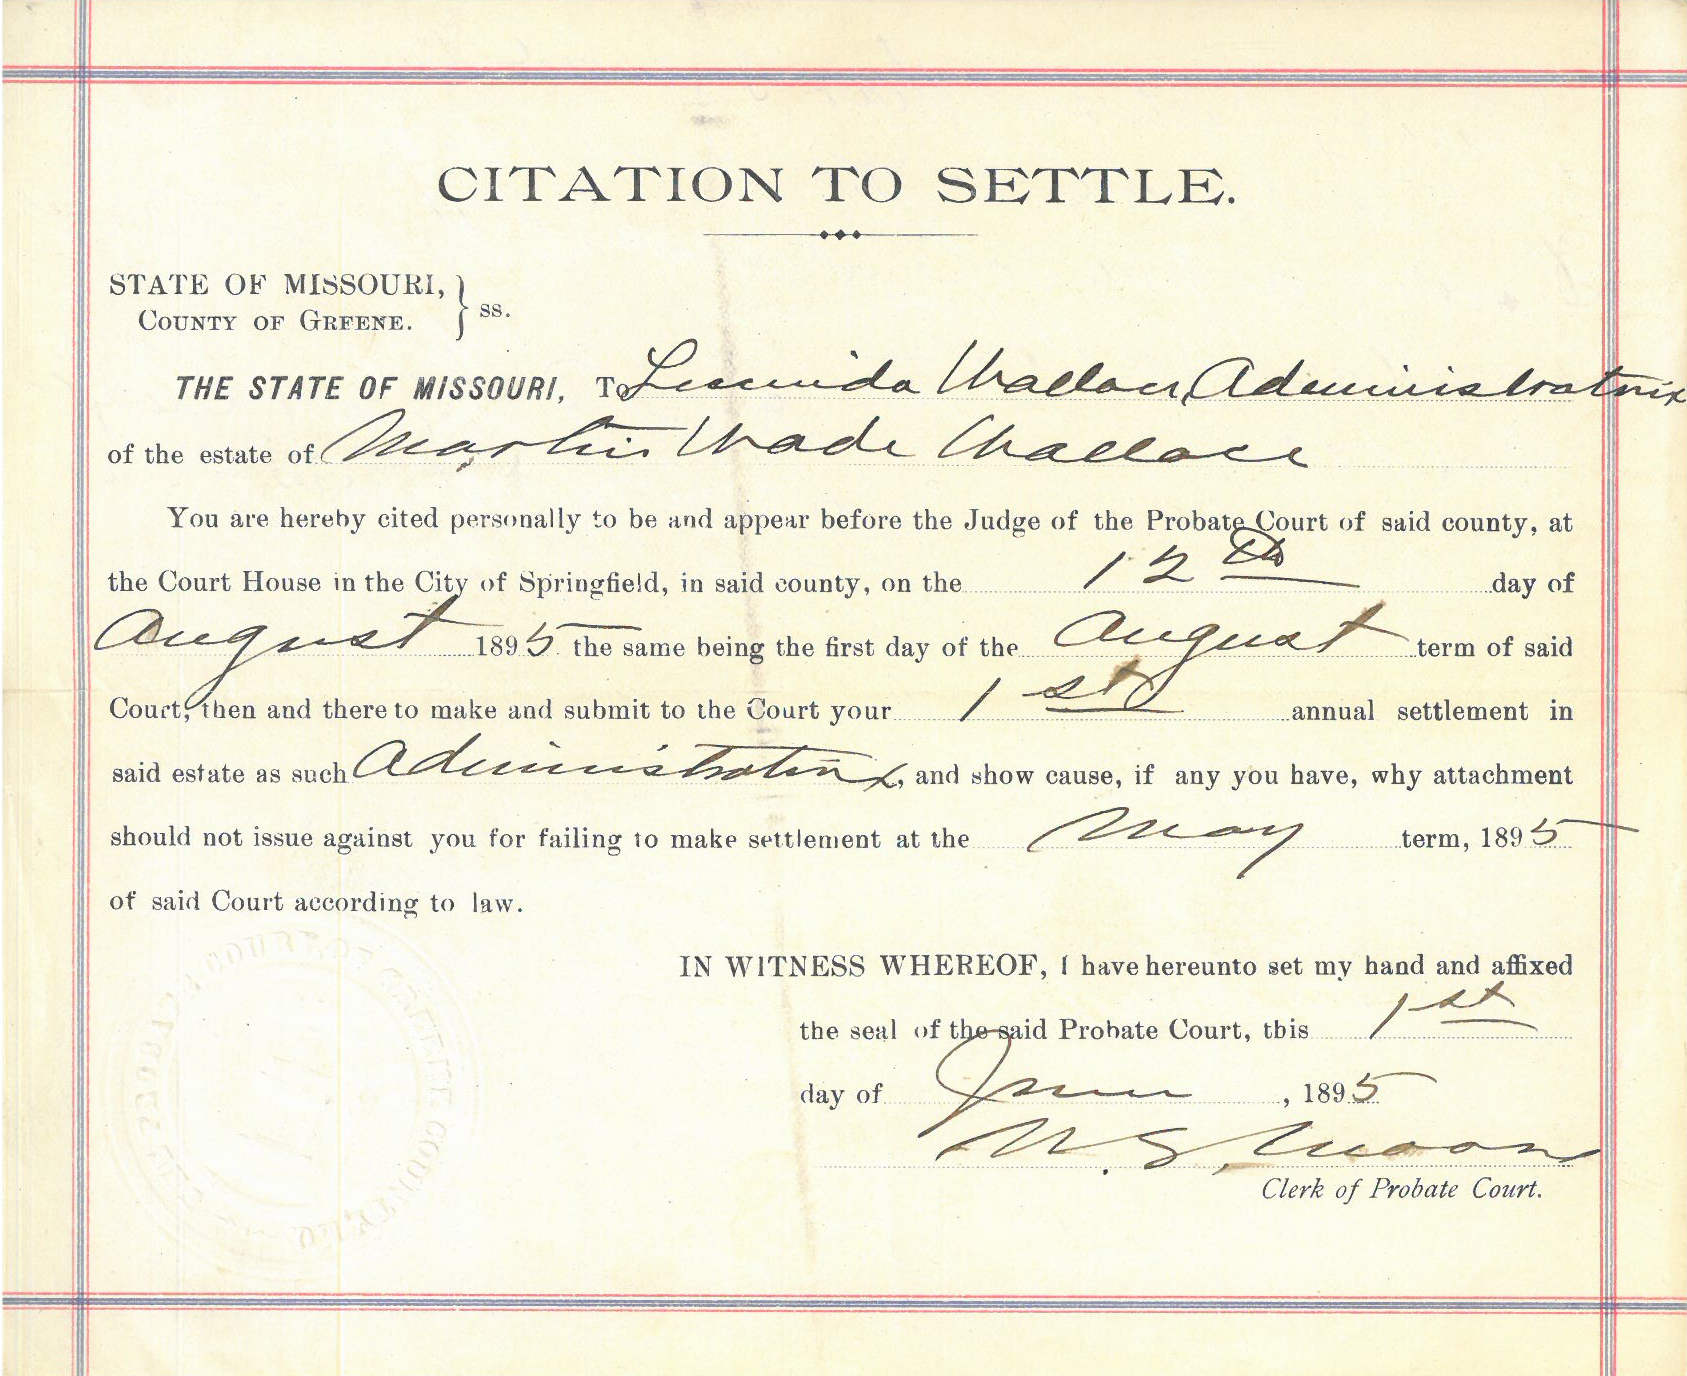 CITATION TO SETTLE.
STATE OF MISSOURI,
COUNTY OF GREENE. } ss.
THE STATE OF MISSOURI, To Lucinda Wallace, Administratrix
of the estate of Martin Wade Wallace
You are hereby cited personally to be and appear before the Judge of the Probate Court of said county, at
the Court House in the City of Springfield, in said county, on the 12th day of
August 1895 the same being the first day of the August term of said
Court, then and there to make and submit to the Court your 1st annual settlement in
said estate as such Administratrix, and show cause, if any you have, why attachment
should not issue against you for failing to make settlement at the May term, 1895
of said Court according to law.
IN WITNESS WHEREOF, I have hereunto set my hand and affixed
the seal of the said Probate Court, this 1st
day of June, 1895
Moon
Clerk of Probate Court.